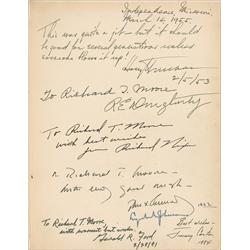 Independence, Missouri
March 14, 1955.
This was quite a job - but it should
be good for several generations unless
someone blows it up!
Harry Truman
2/5/53
To Richard T. Moore
R E Dougherty
To Richard T. Moore
with best wishes
from Richard Nixon
To Richard T. Moore—
with very good wish—
1962
Lyndon B Johnson
Best wishes -
Jimmy Carter
To Richard T. Moore
with warmest best wishes,
Gerald R. Ford